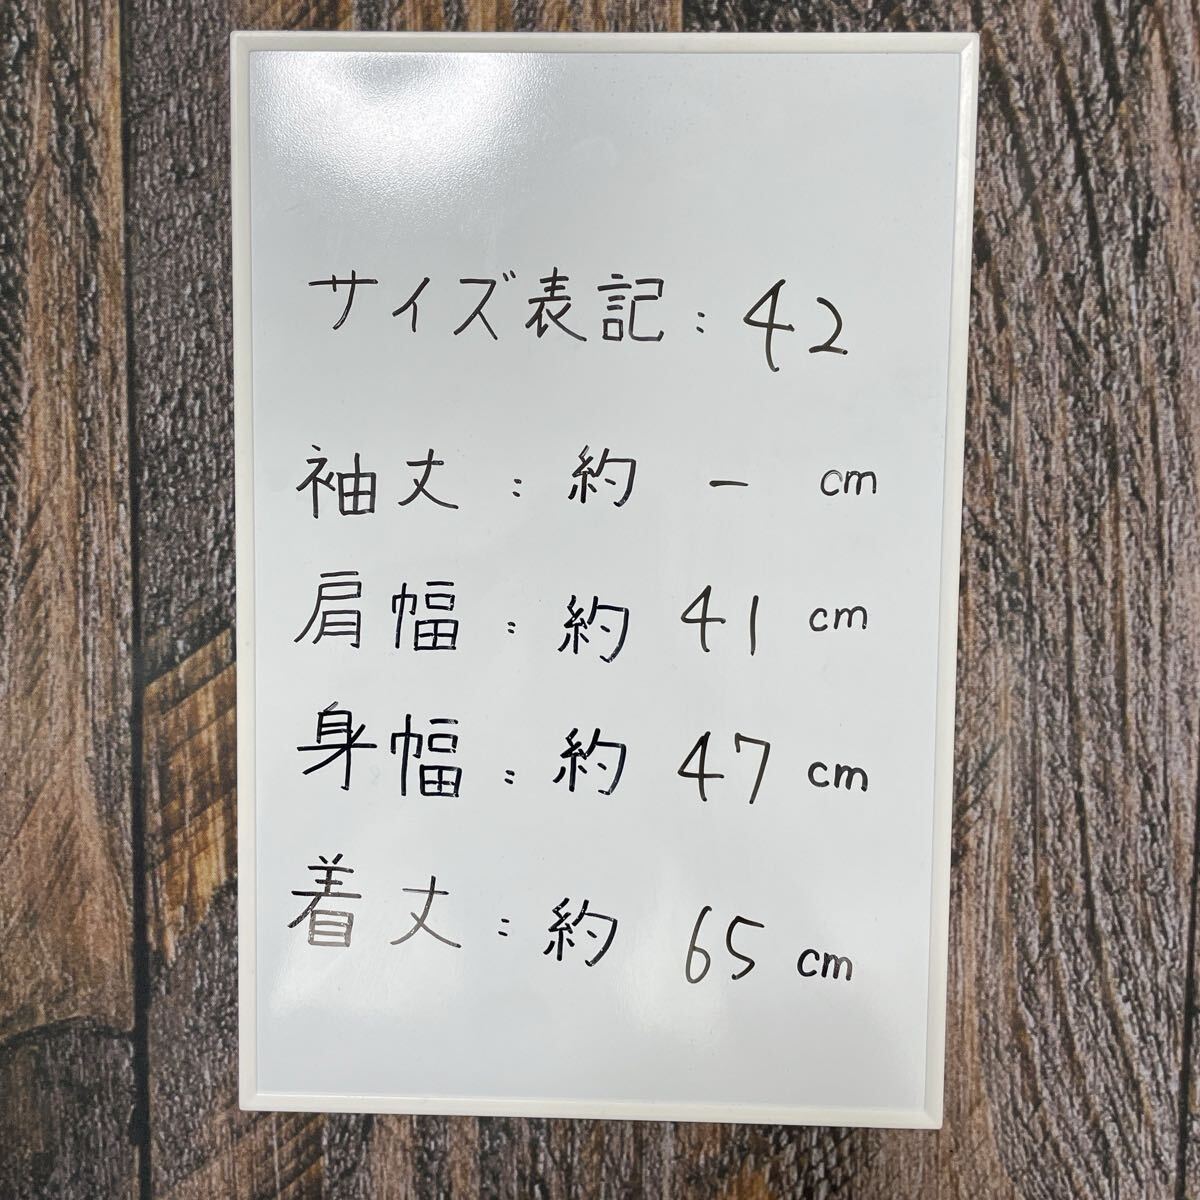 サイズ表記：42
袖丈：約 - cm
肩幅：約 41 cm
身幅：約 47 cm
着丈：約 65 cm